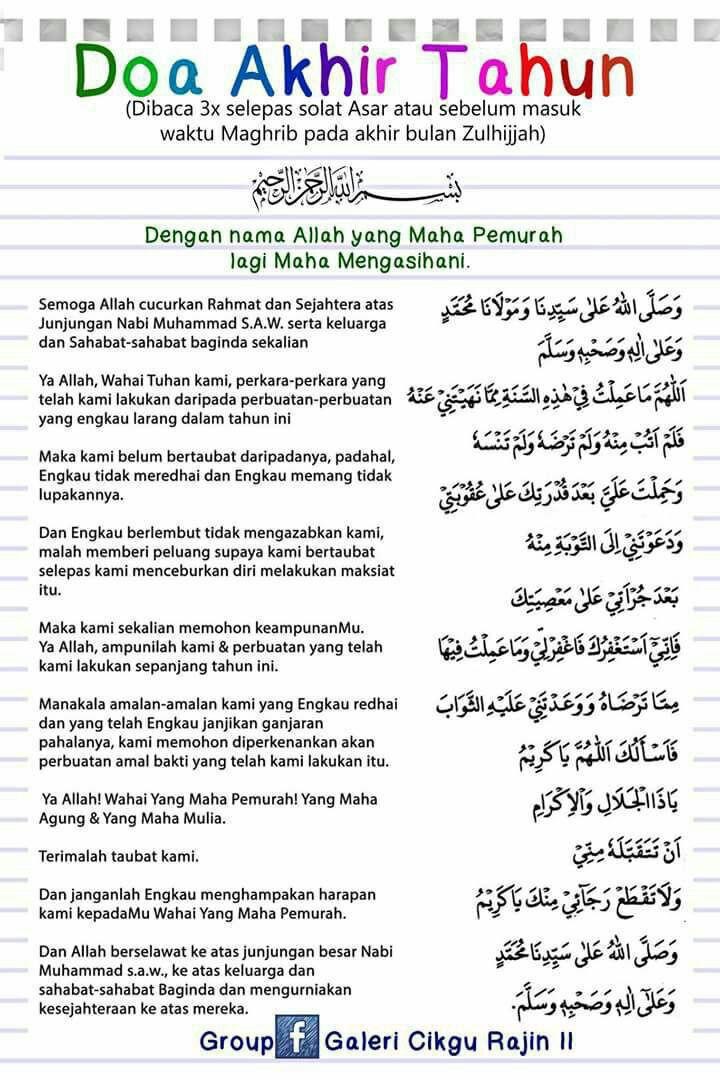 Doa Akhir Tahun
(Dibaca 3x selepas solat Asar atau sebelum masuk
waktu Maghrib pada akhir bulan Zulhijjah)
بِسْمِ اللَّهِ الرَّحْمَٰنِ الرَّحِيمِ
Dengan nama Allah yang Maha Pemurah
lagi Maha Mengasihani.
Semoga Allah cucurkan Rahmat dan Sejahtera atas
Junjungan Nabi Muhammad S.A.W. serta keluarga
dan Sahabat-sahabat baginda sekalian
Ya Allah, Wahai Tuhan kami, perkara-perkara yang
telah kami lakukan daripada perbuatan-perbuatan
yang engkau larang dalam tahun ini
Maka kami belum bertaubat daripadanya, padahal,
Engkau tidak meredhai dan Engkau memang tidak
lupakannya.
Dan Engkau berlembut tidak mengazabkan kami,
malah memberi peluang supaya kami bertaubat
selepas kami menceburkan diri melakukan maksiat
itu.
Maka kami sekalian memohon keampunanMu.
Ya Allah, ampunilah kami & perbuatan yang telah
kami lakukan sepanjang tahun ini.
Manakala amalan-amalan kami yang Engkau redhai
dan yang telah Engkau janjikan ganjaran
pahalanya, kami memohon diperkenankan akan
perbuatan amal bakti yang telah kami lakukan itu.
Ya Allah! Wahai Yang Maha Pemurah! Yang Maha
Agung & Yang Maha Mulia.
Terimalah taubat kami.
Dan janganlah Engkau menghampakan harapan
kami kepadaMu Wahai Yang Maha Pemurah.
Dan Allah berselawat ke atas junjungan besar Nabi
Muhammad s.a.w., ke atas keluarga dan
sahabat-sahabat Baginda dan mengurniakan
kesejahteraan ke atas mereka.
وَصَلَّى اللّٰهُ عَلٰى سَيِّدِنَا وَمَوْلَانَا مُحَمَّدٍ
وَعَلٰى اٰلِهٖ وَصَحْبِهٖ وَسَلَّمَ
اَللّٰهُمَّ مَا عَمِلْتُ فِيْ هٰذِهِ السَّنَةِ مِمَّا نَهَيْتَنِيْ عَنْهُ
فَلَمْ اَتُبْ مِنْهُ وَلَمْ تَرْضَهُ وَلَمْ تَنْسَهُ
وَحَمِلْتَ عَلَيَّ بَعْدَ قُدْرَتِكَ عَلٰى عُقُوْبَتِيْ
وَدَعَوْتَنِيْ اِلَى التَّوْبَةِ مِنْهُ
بَعْدَ جُرْاَتِيْ عَلٰى مَعْصِيَتِكَ
فَاِنِّيْ اَسْتَغْفِرُكَ فَاغْفِرْلِيْ وَمَا عَمِلْتُ فِيْهَا
مِمَّا تَرْضَاهُ وَوَعَدْتَنِيْ عَلَيْهِ الثَّوَابَ
فَاَسْأَلُكَ اَللّٰهُمَّ يَا كَرِيْمُ
يَاذَا الْجَلَالِ وَالْاِكْرَامِ
اَنْ تَتَقَبَّلَهُ مِنِّيْ
وَلَا تَقْطَعْ رَجَائِيْ مِنْكَ يَا كَرِيْمُ
وَصَلَّى اللّٰهُ عَلٰى سَيِّدِنَا مُحَمَّدٍ
وَعَلٰٓى اٰلِهٖ وَصَحْبِهٖ وَسَلَّمَ.
Group f Galeri Cikgu Rajin II